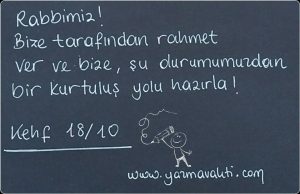 Rabbimiz!
Bize tarafından rahmet
ver ve bize, şu durumumuzdan
bir kurtuluş yolu hazırla!
Kehf 18/10
www.yazmavakti.com